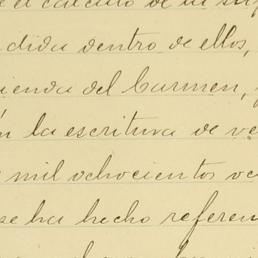 e el cálculo de la sup
dida dentro de ellos,
ienda del Carmen,
n la escritura de ve
mil ochocientos oc
se ha hecho referen